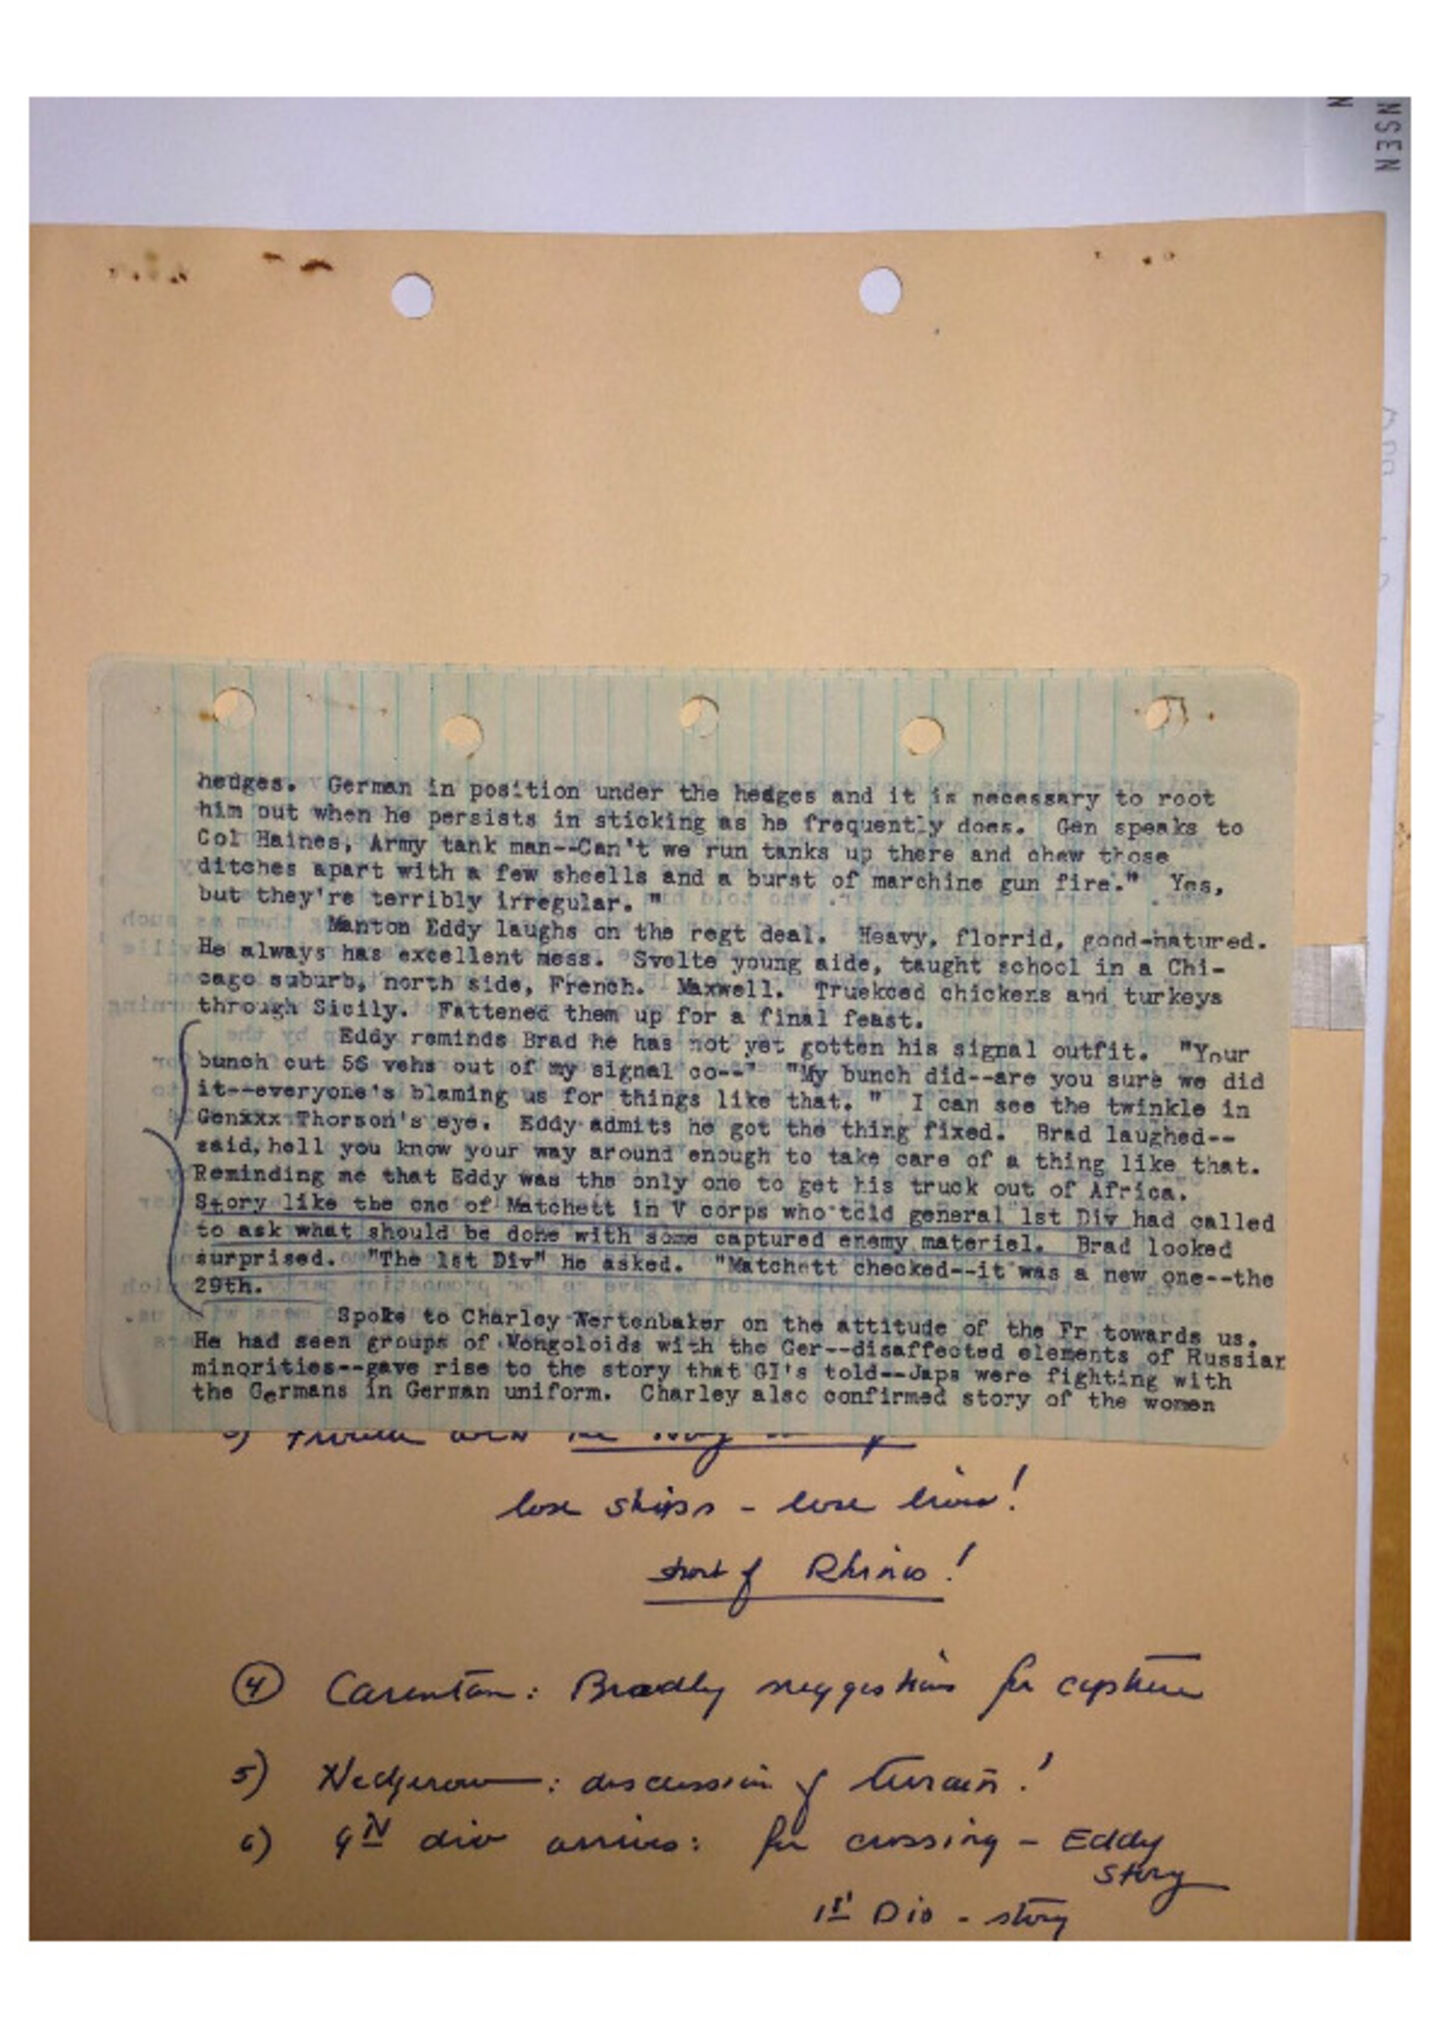 NSEN
hedges.  German in position under the hedges and it is necessary to root
him out when he persists in sticking as he frequently does.  Gen speaks to
Col Haines, Army tank man--Can't we run tanks up there and chew those
ditches apart with a few sheells and a burst of marchine gun fire."  Yes,
but they're terribly irregular. "
Manton Eddy laughs on the regt deal.  Heavy, florrid, good-natured.
He always has excellent mess.  Svelte young aide, taught school in a Chi-
cago suburb, north side, French.  Maxwell.  Truekced chickens and turkeys
through Sicily.  Fattened them up for a final feast.
Eddy reminds Brad he has not yet gotten his signal outfit.  "Your
bunch cut 56 vehs out of my signal co--" "My bunch did--are you sure we did
it--everyone's blaming us for things like that. "  I can see the twinkle in
Genxxx Thorson's eye.  Eddy admits he got the thing fixed.  Brad laughed--
said, hell you know your way around enough to take care of a thing like that.
Reminding me that Eddy was the only one to get his truck out of Africa.
Story like the one of Matchett in V corps who told general 1st Div had called
to ask what should be done with some captured enemy materiel.  Brad looked
surprised.  "The 1st Div" he asked.  "Matchett checked--it was a new one--the
29th.
Spoke to Charley Wertenbaker on the attitude of the Fr towards us.
He had seen groups of Mongoloids with the Ger--disaffected elements of Russian
minorities--gave rise to the story that GI's told--Japs were fighting with
the Germans in German uniform.  Charley also confirmed story of the women
lose ships - lose lives!
short of Rhinos!
4 Carentan: Bradly suggestions for capture
5) Hedgerow: discussion of terrain!
6) 9th div arrives: for crossing - Eddy
story
1st Div - story